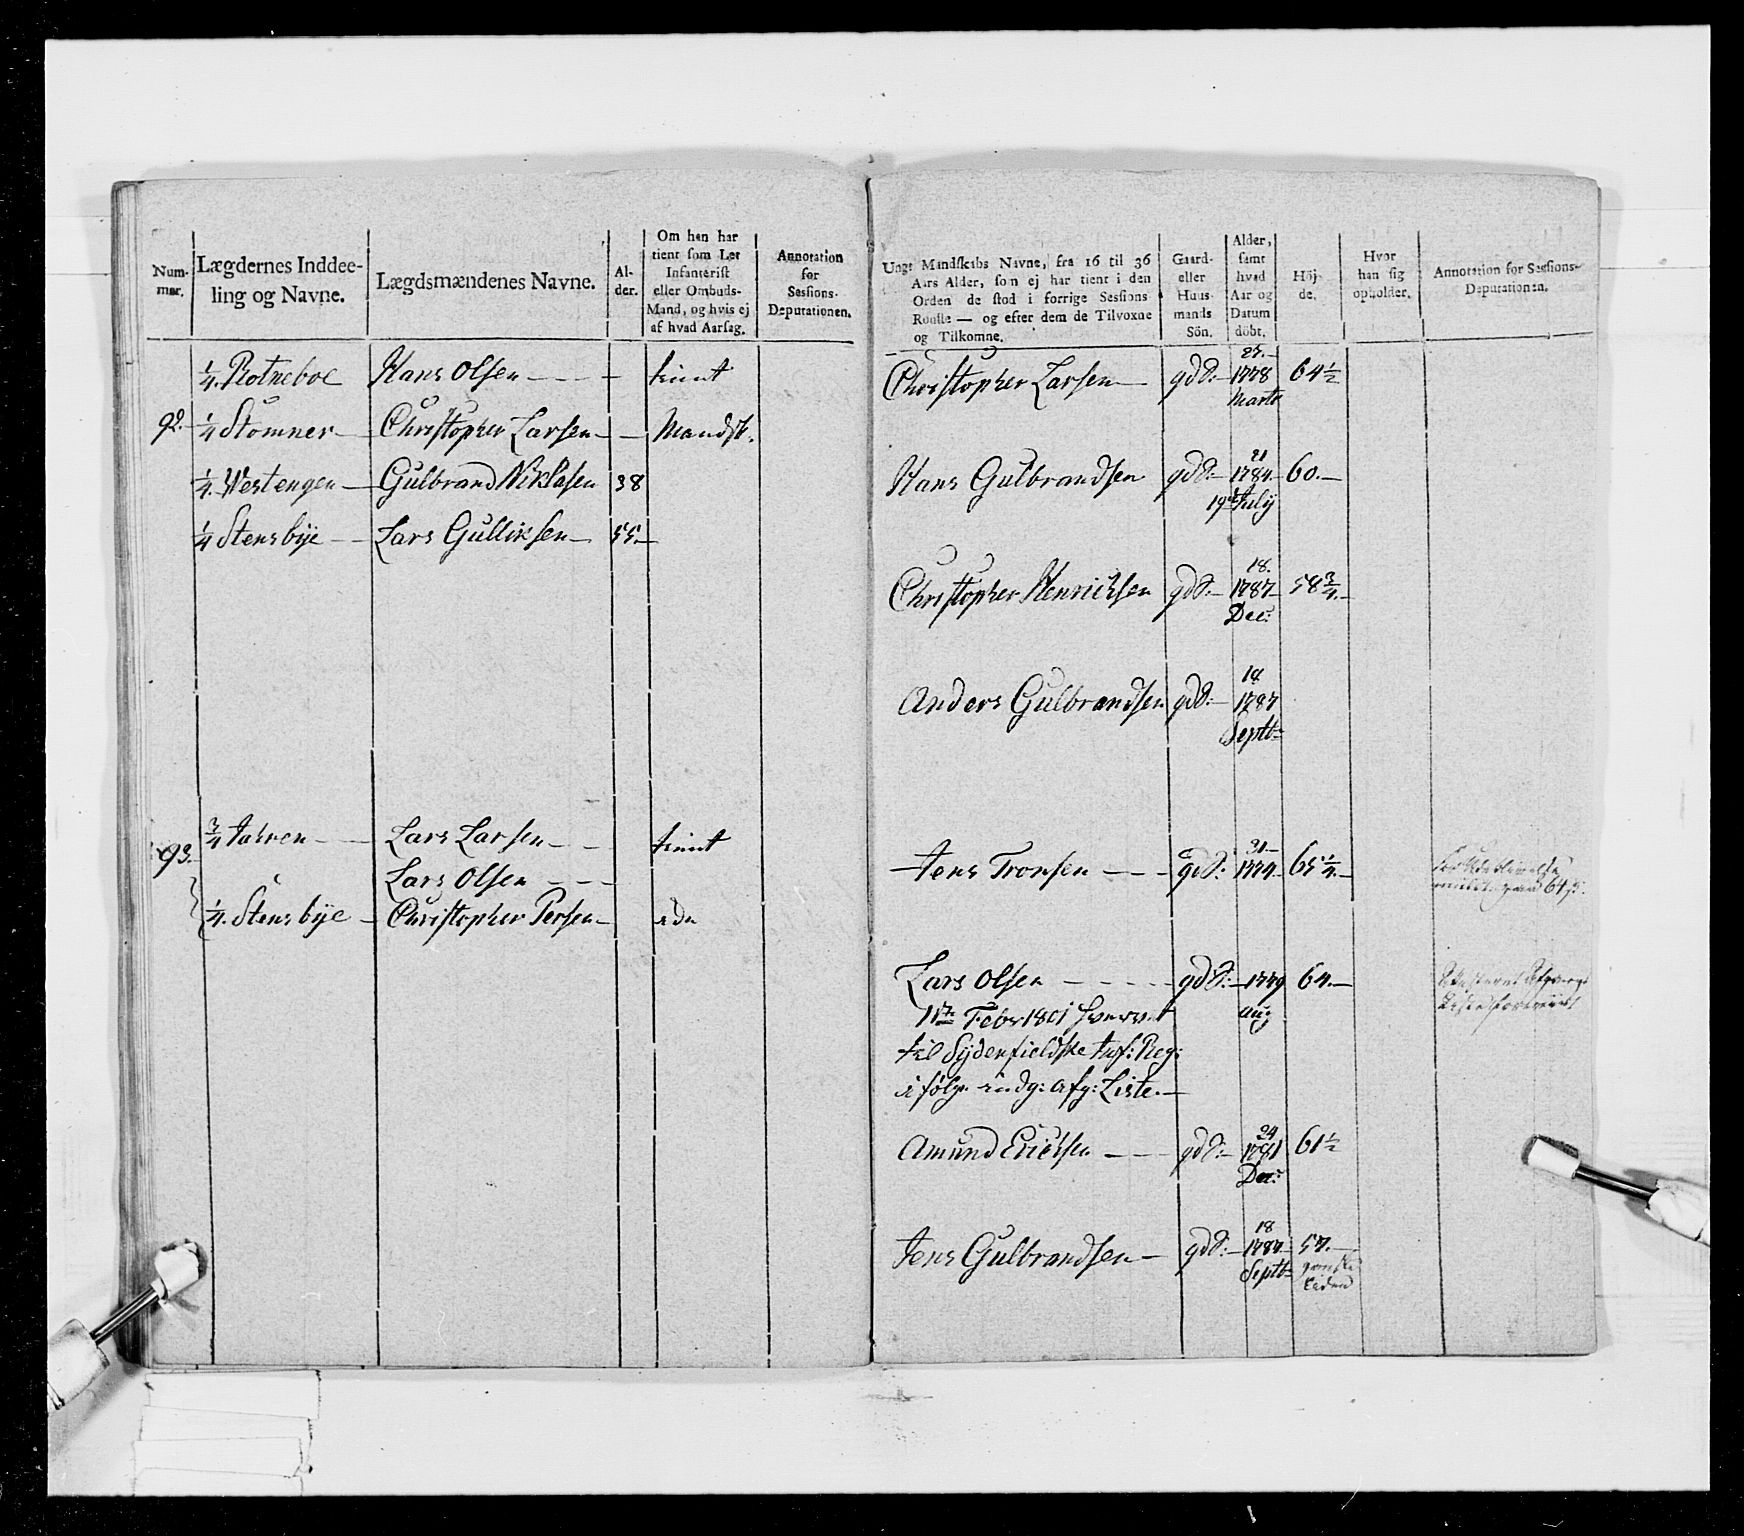 Num-
mer.
Lægdernes Inddee-
ling og Navne.
Lægdsmændenes Navne.
Al-
der.
Om han har
tient som Let
Infanterist
eller Ombuds-
Mand, og hvis ej
af hvad Aarsag.
Annotation
for
Sessions-
Deputationen.
1/4. Rotneboe Hans Olsen - - - - tient
92. 1/4 Stömner Christopher Larsen - - Mandsk.
1/4. Westengen Gulbrand Niklasen 38
1/4 Stensbÿe - - Lars Gulliksen 55.
93. 3/4 Lars Larsen - - tient
Lars Olsen - - -
1/4. Stensbÿe - Christopher Persen
Ungt Mandskabs Navne, fra 16 til 36
Aars Alder, som ej har tient i den
Orden de stod i forrige Sessions
Roulle — og efter dem de Tilvoxne
og Tilkomne.
Gaard-
eller
Huus-
mands
Sön.
Alder,
samt
hvad
Aar og
Datum
döbt.
Höj-
de.
Hvor
han sig
opholder.
Annotation for Sessions-
Deputationen.
25.
Christopher Larsen gdS: 1778 64 1/2
Marti
21
Hans Gulbrandsen gdS: 1784. 60.
July
18.
Christopher Henrichsen gdS: 1787 58 3/4.
Dec:
18
Anders Gulbrandsen gdS: 1787
Septb:
31
Jens Tronsen - - - gdS: 1774 65 1/4.
Lars Olsen - - - - - gdS: 1779 64.
Febr 1801 Aug
til Sÿdenfieldske Inf: Reg:
i fölge afg: Liste.
24
Amund Erichsen - - - gdS: 1781 61 1/2
Dec:
18
Jens Gulbrandsen gdS: 1787 57.
Septb: